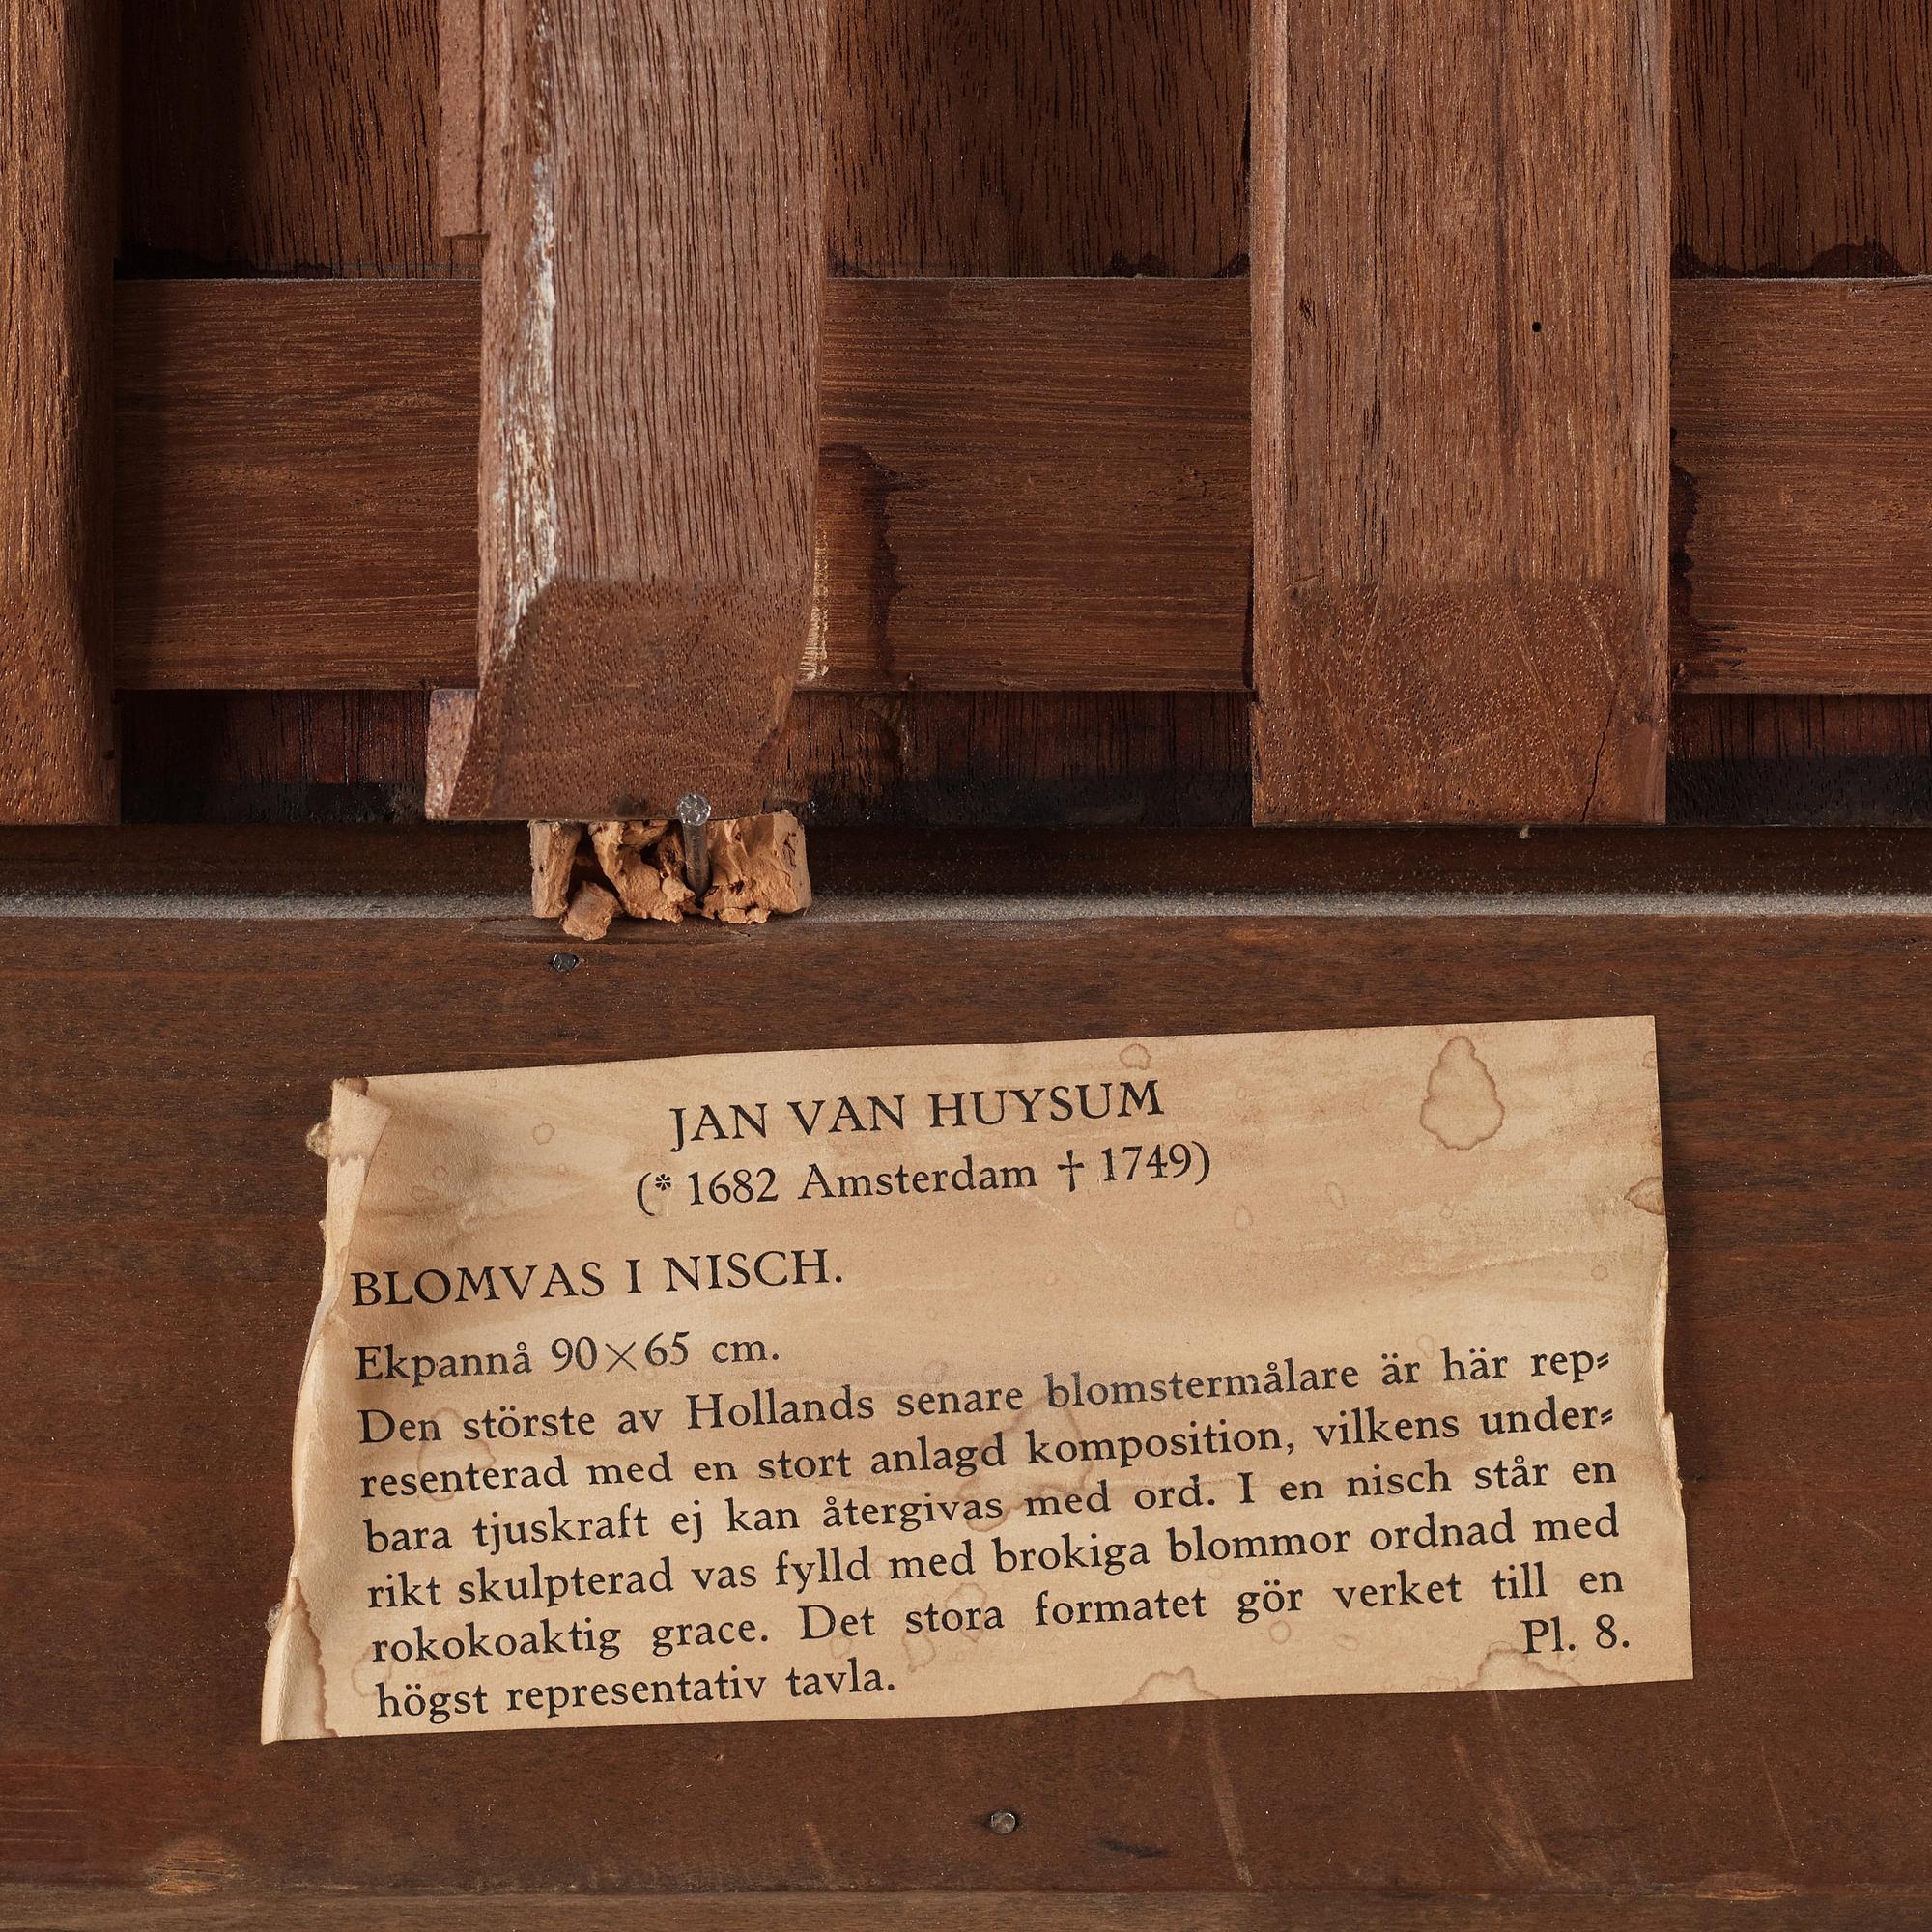 JAN VAN HUYSUM
(* 1682 Amsterdam † 1749)
BLOMVAS I NISCH.
Ekpannå 90×65 cm.
Den störste av Hollands senare blomstermålare är här rep⸗
resenterad med en stort anlagd komposition, vilkens under⸗
bara tjuskraft ej kan återgivas med ord. I en nisch står en
rikt skulpterad vas fylld med brokiga blommor ordnad med
rokokoaktig grace. Det stora formatet gör verket till en
högst representativ tavla. Pl. 8.